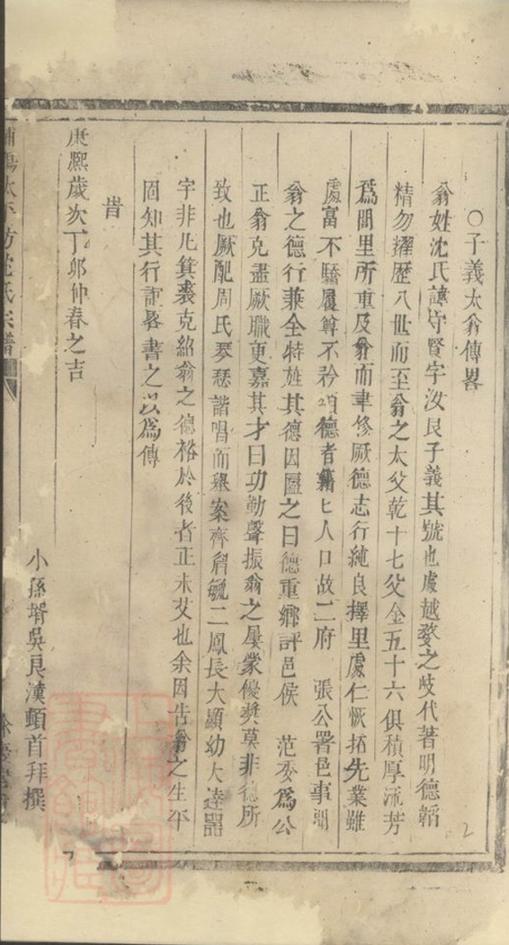 ○子義太翁傳畧
翁姓沈氏諱守賢字汝良子義其號也處越婺之歧代著明德韜
精勿擢歷八世而至翁之太父乾十七父金五十六俱積厚流芳
爲閭里所重及翁而聿修厥德志行純良擇里處仁恢拓先業雖
處富不驕履尊不矜頌德者籍匕人口故二府 張公署邑事聞
翁之德行兼全特旌其德因匾之曰德重鄉評邑侯 范委爲公
正翁克盡厥職更嘉其才曰功勤聲振翁之屢蒙優奬莫非德所
致也厥配周氏琴瑟諧唱而舉案齊眉毓二鳳長大顯幼大逵器
宇非凡箕裘克紹翁之德裕於後者正未艾也余因告翁之生平
固知其行誼畧書之以爲傳
旹
康熙歲次丁卯仲春之吉
小孫壻吳良漢頓首拜撰
沈氏宗譜
2